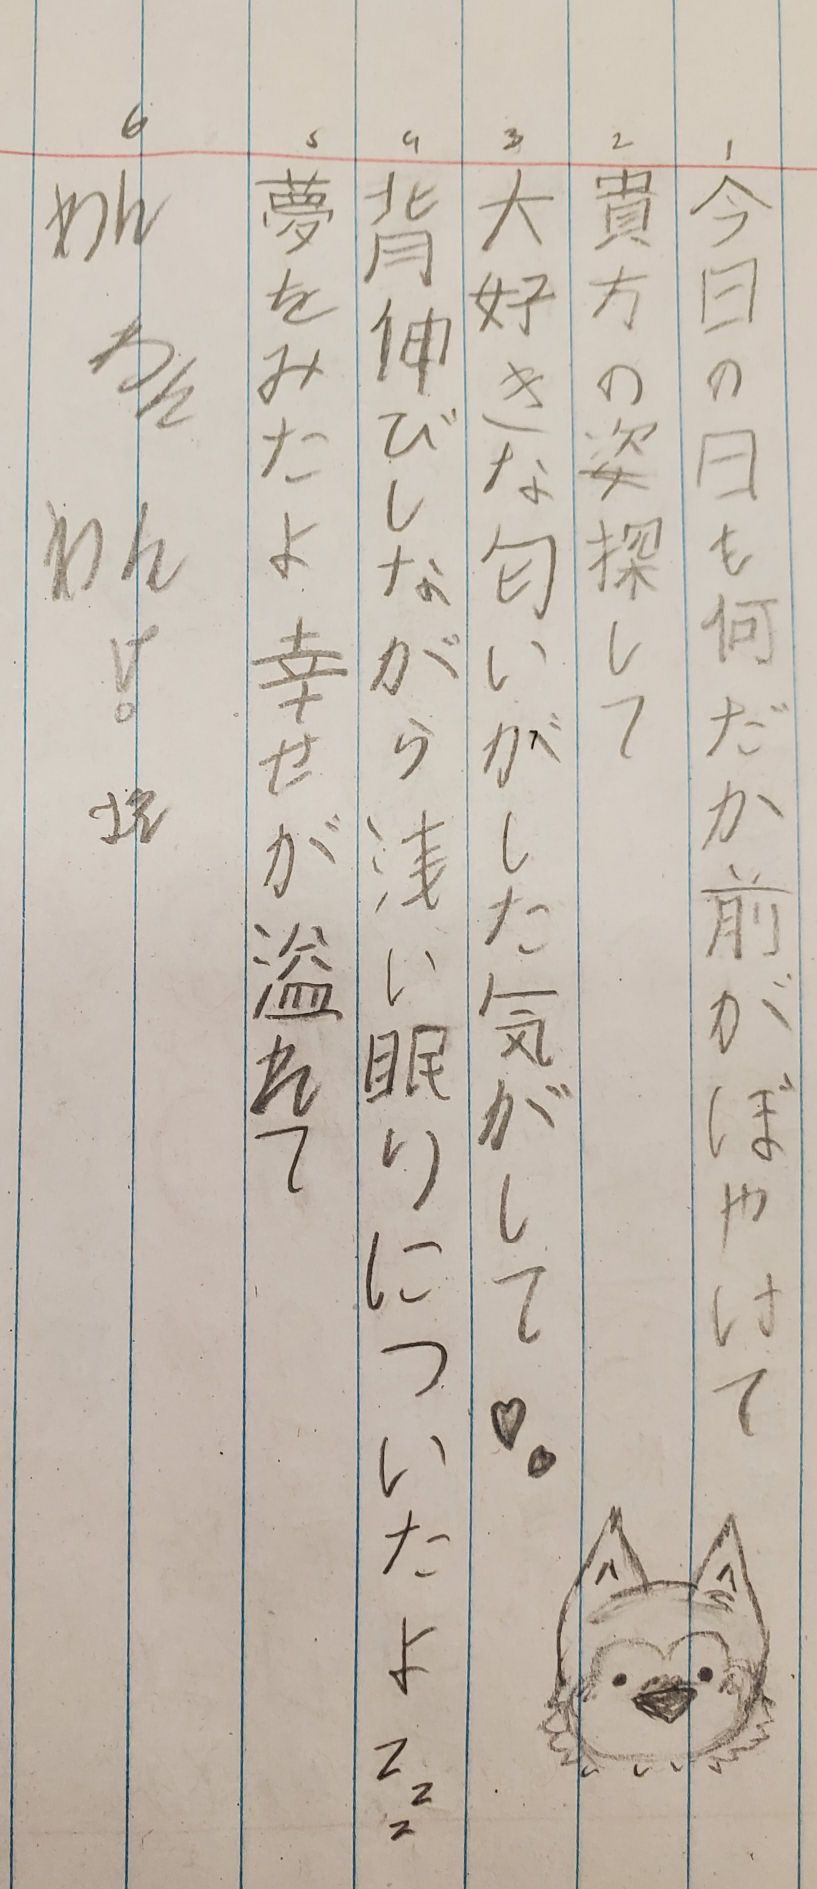 1 今日の日も何だか前がぼやけて
2 貴方の姿探して
3 大好きな匂いがした気がして
4 背伸びしながら浅い眠りについたよ zzz
5 夢をみたよ幸せが溢れて
6 わんわんわん!